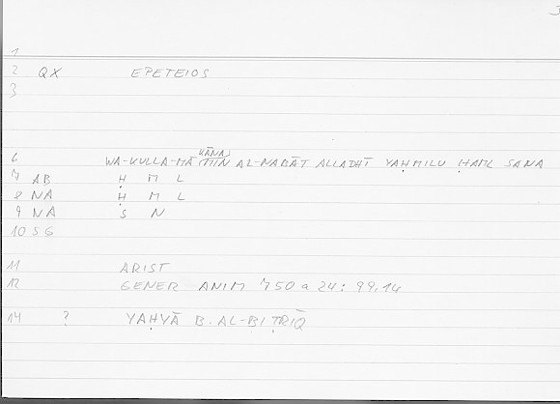 3
1
2 QX EPETEIOS
3
KĀNA
6 WA-KULLA-MĀ MIN AL-NABĀT ALLADHĪ YAḤMILU ḤAML SANA
7 AB Ḥ M L
8 NA Ḥ M L
9 NA S N
10 SG
11 ARIST
12 GENER ANIM 750 a 24: 99.14
14 ? YAḤYĀ B. AL-BIṬRĪQ